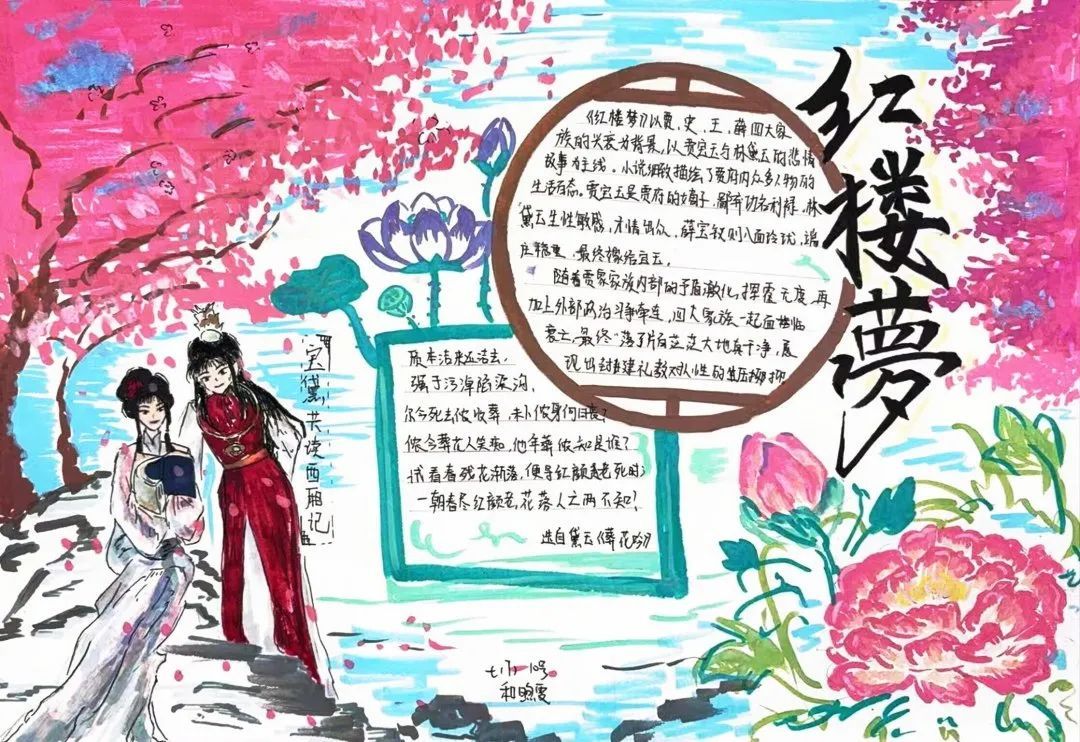 红楼夢
《红楼梦》以贾、史、王、薛四大家
族的兴衰为背景,以贾宝玉与林黛玉的悲情
故事为主线。小说细致描绘了贾府内众多人物的
生活百态。贾宝玉是贾府的嫡子,鄙弃功名利禄,林
黛玉生性敏感,才情出众,薛宝钗则八面玲珑,端
庄稳重,最终嫁给宝玉。
随着贾家家族内部的矛盾激化,挥霍无度,再
加上外部政治斗争牵连,四大家族一起面临
衰亡,最终"落了片白茫茫大地真干净,展
现出封建礼教对人性的
质本洁来还洁去,
强于污淖陷渠沟。
尔今死去侬收葬,未卜侬身何日丧?
侬今葬花人笑痴,他年葬侬知是谁?
试看春残花渐落,便是红颜老死时;
一朝春尽红颜老,花落人亡两不知?
选自黛玉《葬花吟》
宝黛共读西厢记
七(7) 10号